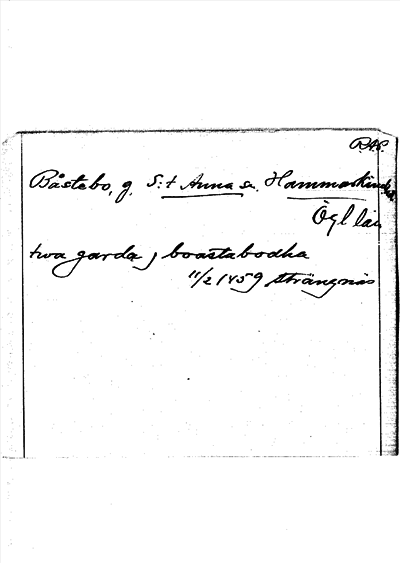 R.A.P.
Båstebo, g. S:t Anna sn. Hammarkinds
Ögl län
twa garda j boastabodha
11/2 1459 Strängnäs